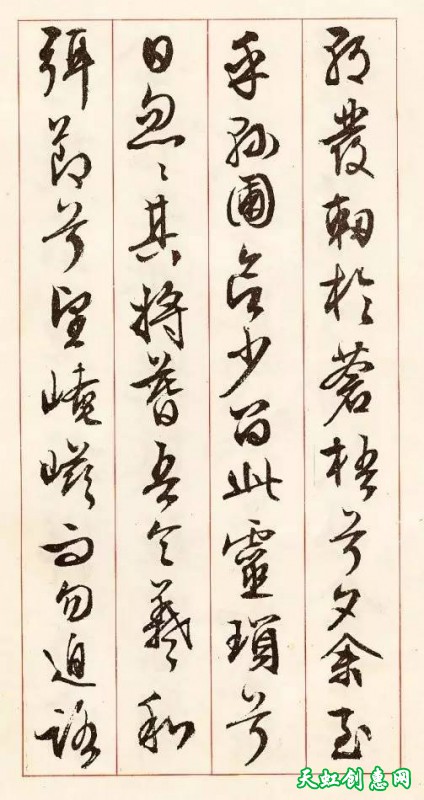 朝發軔於蒼梧兮夕余至
乎縣圃欲少留此靈瑣兮
日忽〻其將暮吾令羲和
弭節兮望崦嵫而勿迫路
天虹创惠网